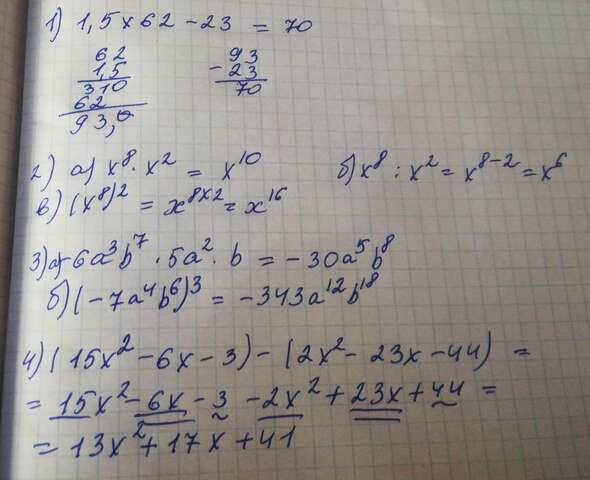 1) 1,5 × 62 - 23 = 70
62
1,5
310
62
93,0
93
- 23
70
2) а) x⁸ · x² = x¹⁰ б) x⁸ : x² = x⁸⁻² = x⁶
в) (x⁸)² = x⁸ˣ² = x¹⁶
3) а) -6a³b⁷ · 5a² · b = -30a⁵b⁸
б) (-7a⁴b⁶)³ = -343a¹²b¹⁸
4) (15x² - 6x - 3) - (2x² - 23x - 44) =
= 15x² - 6x - 3 - 2x² + 23x + 44 =
= 13x² + 17x + 41